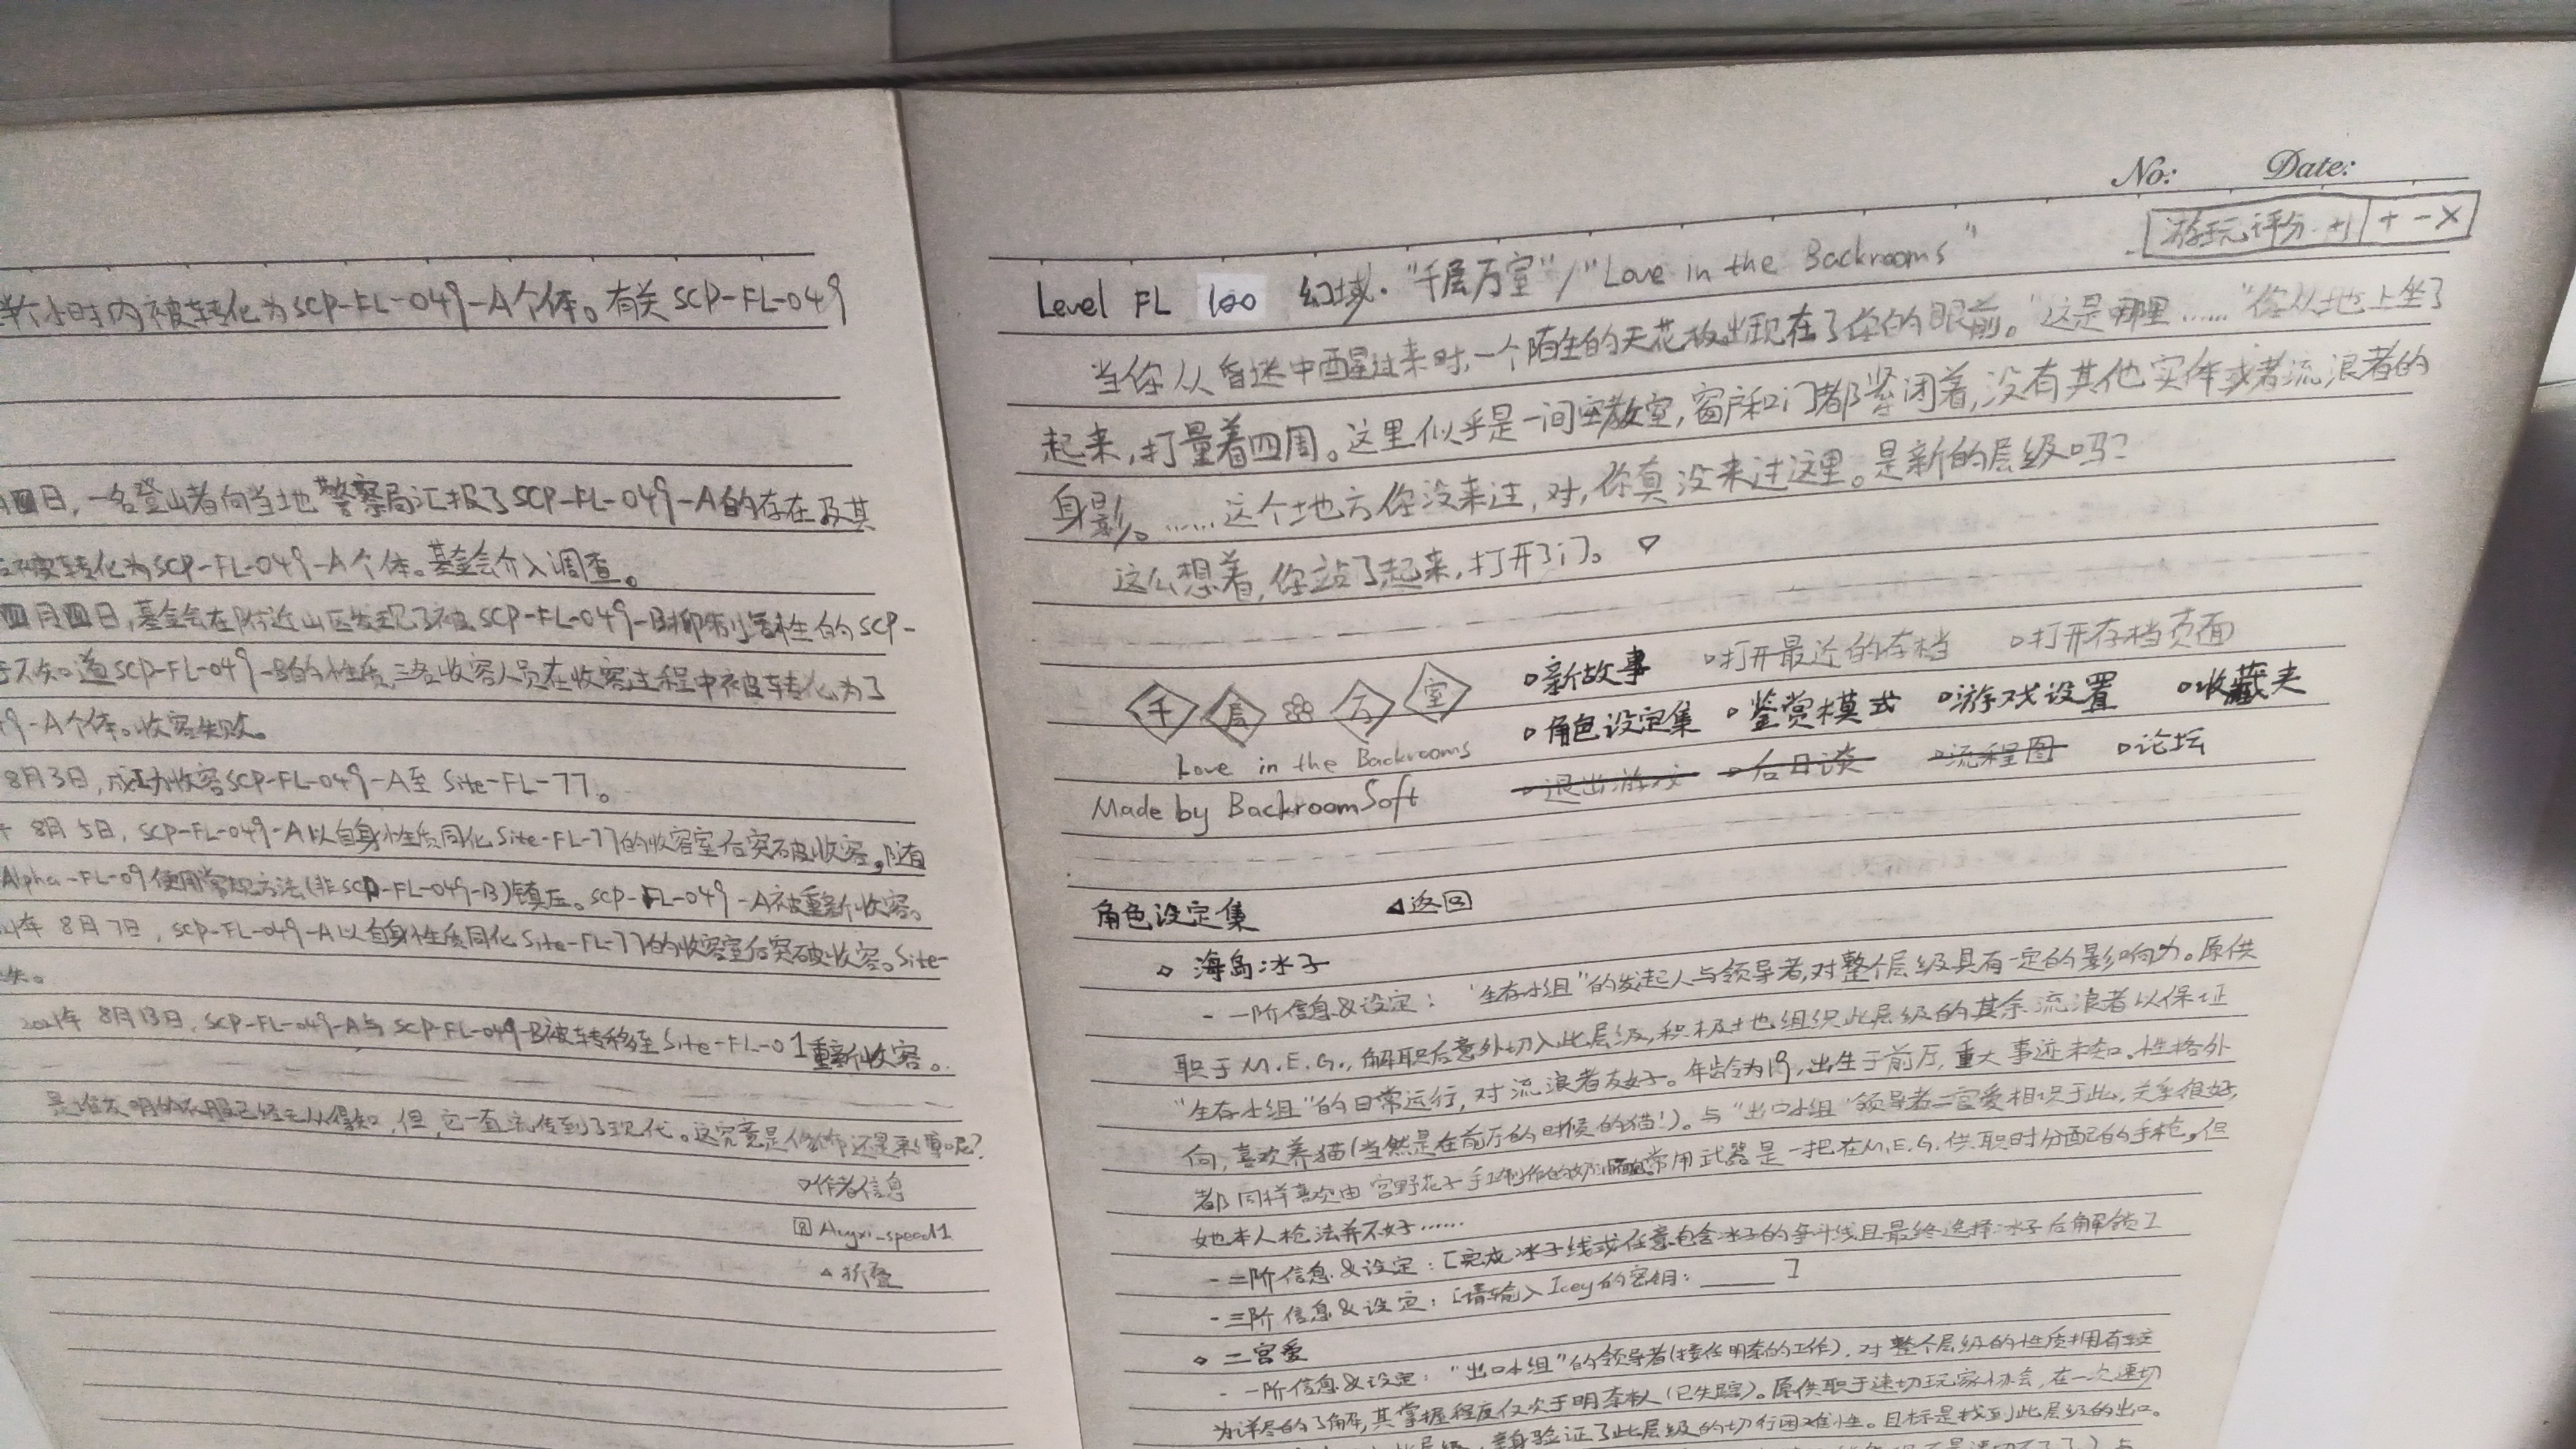 半小时内被转化为SCP-FL-049-A个体。有关SCP-FL-049
日，一名登山者向当地警察局汇报了SCP-FL-049-A的存在及其
被转化为SCP-FL-049-A个体。基金会介入调查。
四月四日，基金会在附近山区发现了被SCP-FL-049-B抑制 的SCP-
于不知道SCP-FL-049-B的性质，三名收容人员在收容过程中被转化为了
9-A个体。收容失败。
8月3日，成功收容SCP-FL-049-A至Site-FL-77。
8月5日，SCP-FL-049-A以自身性质同化Site-FL-77的收容室后突破收容。随有
Alpha-FL-09使用常规方法(非SCP-FL-049-B)镇压。SCP-FL-049-A被重新收容。
年8月7日，SCP-FL-049-A以自身性质同化Site-FL-77的收容室后突破收容。Site-
失。
2021年8月13日，SCP-FL-049-A与SCP-FL-049-B被转移至Site-FL-01重新收容。
是谁发明的衣服已经无从得知，但，它一直流传到了现代。这究竟是 还是 呢？
▽作者信息
△折叠
No: Date:
游玩评分 +1 + - X
Level FL 100 幻域·"千层万室"/"Love in the Backrooms"
当你从昏迷中醒过来时，一个陌生的天花板出现在了你的眼前。"这是哪里……"你从地上坐了
起来，打量着四周。这里似乎是一间空教室，窗户和门都紧闭着，没有其他实体或者流浪者的
身影。……这个地方你没来过，对，你真没来过这里。是新的层级吗？
这么想着，你站了起来，打开了门。▽
千层万室 ▷新故事 ▷打开最近的存档 ▷打开存档页面
▷角色设定集 ▷鉴赏模式 ▷游戏设置 ▷收藏夹
Love in the Backrooms ▷退出游戏 ▷后日谈 ▷流程图 ▷论坛
Made by BackroomSoft
角色设定集 ◁返回
◇ 海岛冰子
- 一阶信息&设定："生存小组"的发起人与领导者，对整个层级具有一定的影响力。原供
职于M.E.G.，解职后意外切入此层级，积极地组织此层级的其余流浪者以保证
"生存小组"的日常运行，对流浪者友好。年龄为19，出生于前厅，重大事迹未知。性格外
向，喜欢养猫(当然是在前厅的时候的猫！)。与"出口小组"领导者二宫爱相识于此，关系很好，
都同样喜欢由宫野花子手工制作的 常用武器是一把在M.E.G.供职时分配的手枪，但
她本人枪法并不好……
- 二阶信息&设定：[完成冰子线或任意包含冰子的争斗线且最终选择冰子后解锁]
- 三阶信息&设定：[请输入Icey的密钥：_____]
◇ 二宫爱
- 一阶信息&设定："出口小组"的领导者(接任明奈的工作)，对整个层级的性质拥有较
为详尽的了解，其掌握程度仅次于明奈本人(已失踪)。原供职于速切玩家协会，在一次速切
此层级，亲身验证了此层级的切行困难性。目标是找到此层级的出口。